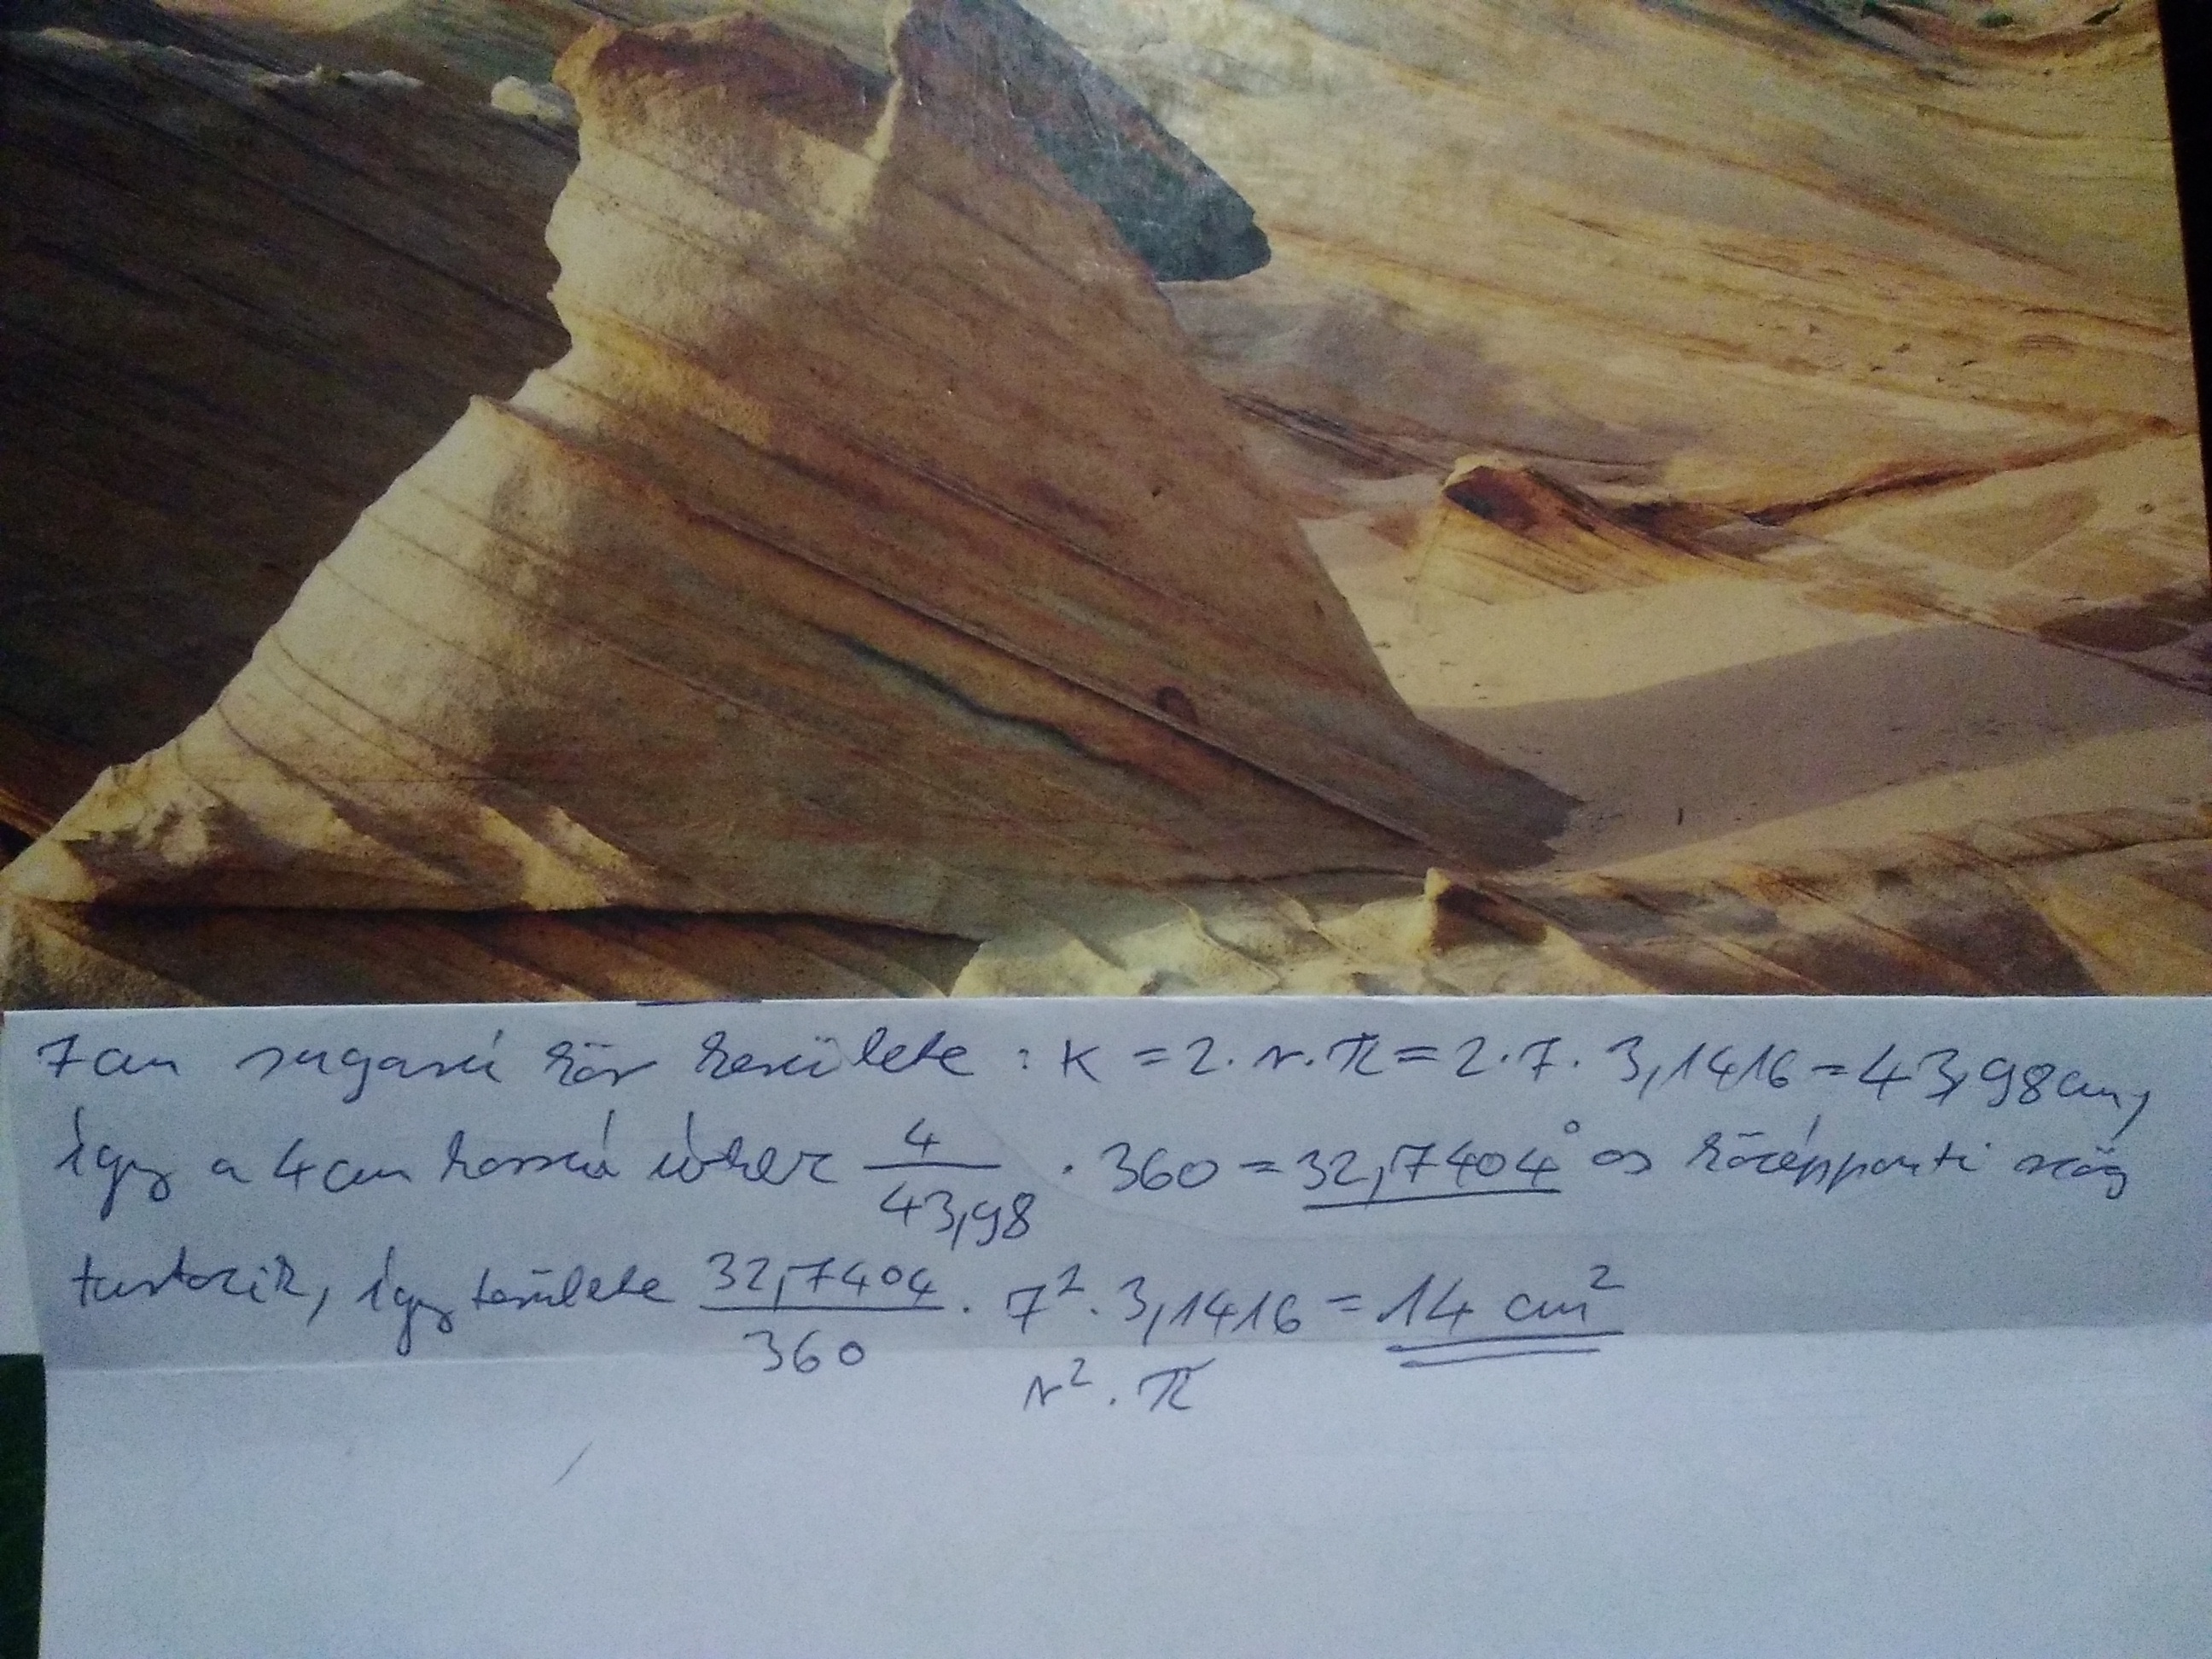 7 cm sugarú kör kerülete : K = 2 · r · π = 2 · 7 · 3,1416 = 43,98 cm,
így a 4 cm hosszú ívhez 4/43,98 · 360 = 32,7404° os középponti szög
tartozik, így területe 32,7404/360 · 7² · 3,1416 = 14 cm²
r² · π